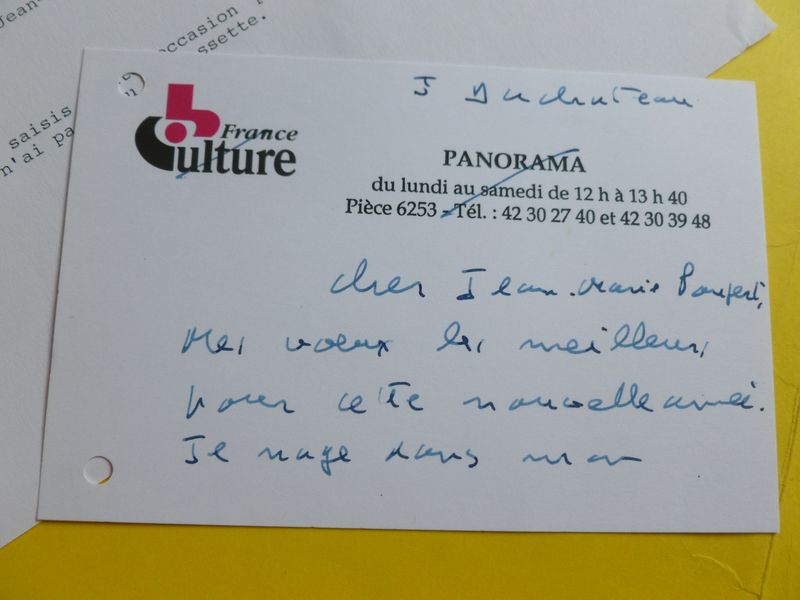 Jean-
occasion
ssette.
saisis
n'ai pa
J Duchateau
France
Culture
PANORAMA
du lundi au samedi de 12 h à 13 h 40
Pièce 6253 - Tél. : 42 30 27 40 et 42 30 39 48
cher Jean-Marie Paupert,
Mes voeux les meilleurs
pour cette nouvelle année.
Je nage dans mon